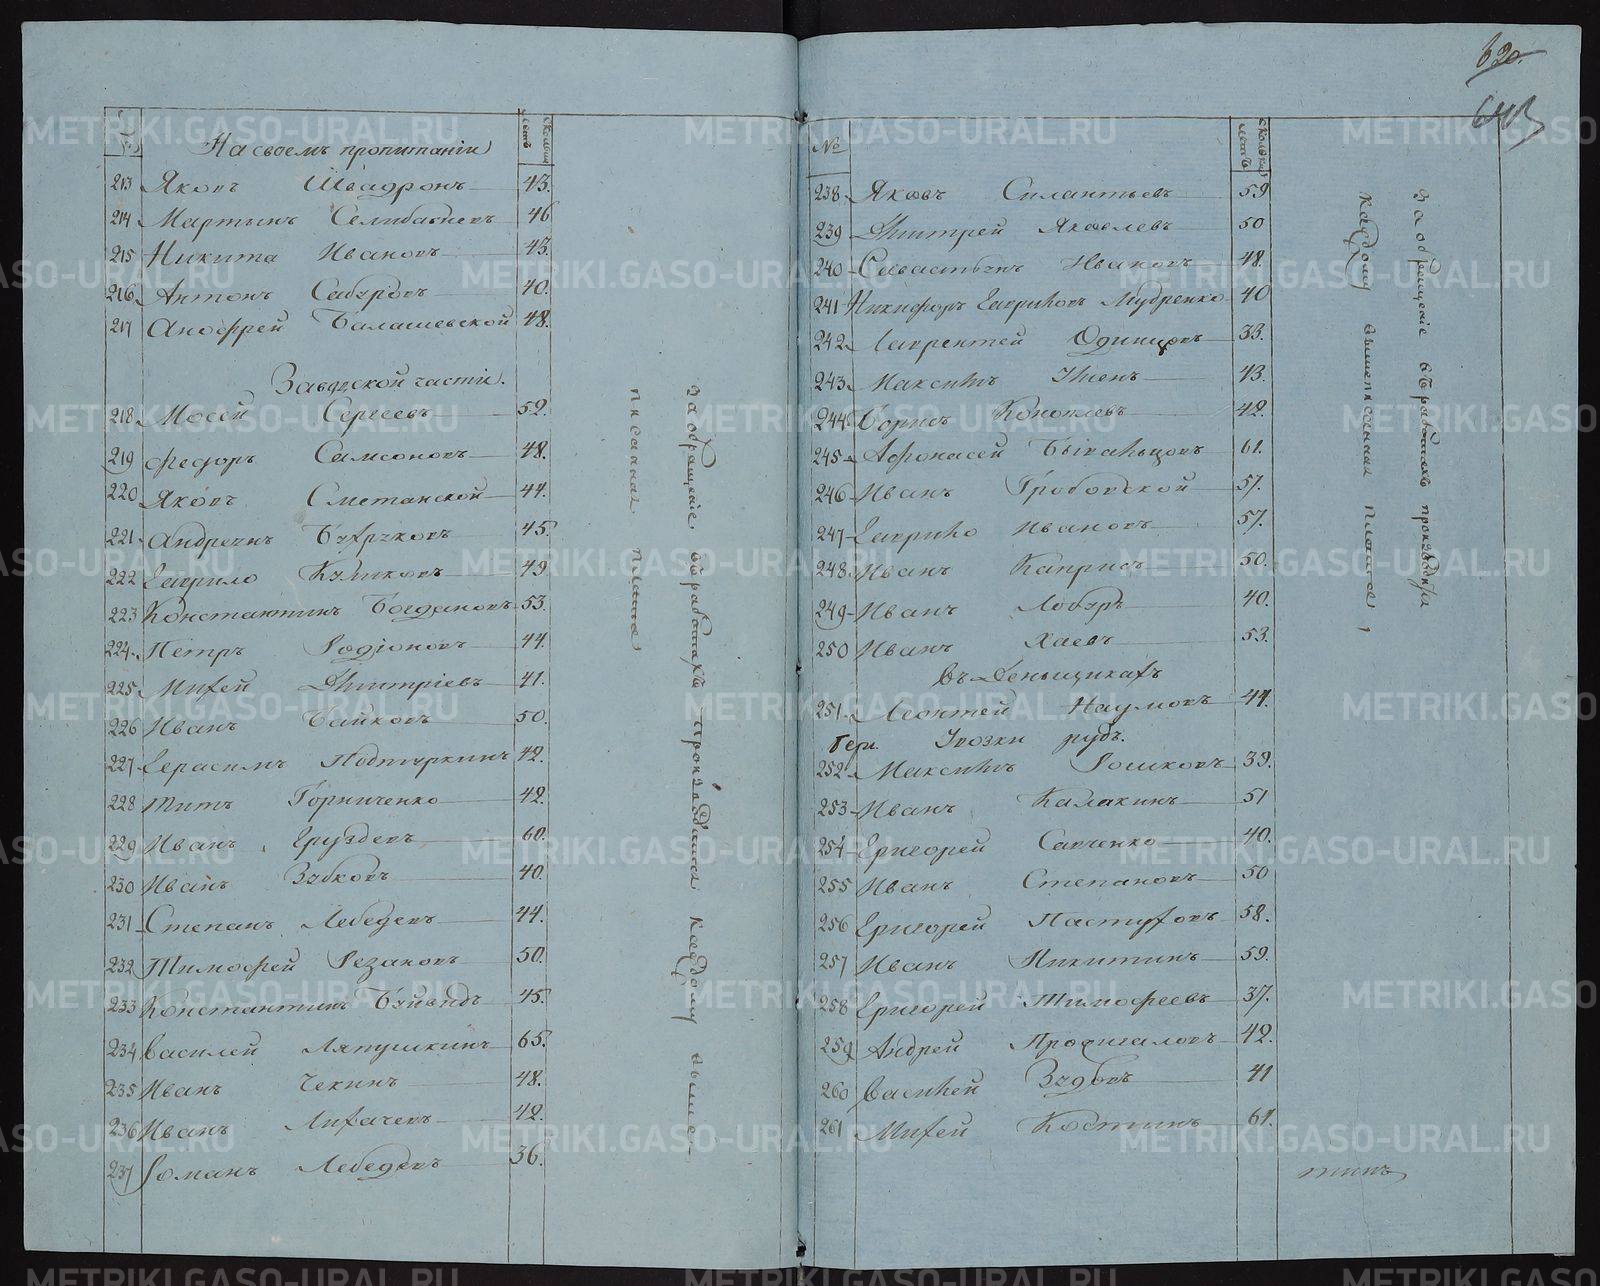 На своемъ пропитаніи
213 Яковъ Швадронъ 43.
214 Мартынъ 46
215 Никита Ивановъ 43.
216 Антонъ 40.
217 Анофрей Балашевской 48.
Заводской части.
218 Мосей Сергеевъ 52.
219 Федоръ Самсоновъ 48.
220 Яковъ Сметанской 44.
221 Андреянъ 45.
222 Гаврило Куликовъ 49.
223 Константинъ Богдановъ 53.
224 Петръ Родіоновъ 44.
225 Михей Дмитріевъ 41.
226 Иванъ Байковъ 50.
227 Герасимъ 42.
228 Титъ Горниченко 42.
229 Иванъ Груздевъ 60.
230 Иванъ Зубковъ 40.
231 Степанъ Лебедевъ 44.
232 Тимофей Резановъ 50.
233 Константинъ 45.
234 Василей Ляпушкинъ 65.
235 Иванъ Чекинъ 48.
236 Иванъ Лихачевъ 42.
237 Романъ Лебедевъ 36.
За обращеніе въ работахъ производится каждому выше
писанная плата
620.
№
238 Яковъ Силантьевъ 59
239 Дмитрей Яковлевъ 50
240 Савастьянъ Ивановъ 48.
241 Никифоръ Гавриловъ Мудренко 40
242 Лаврентей Одинцовъ 33.
243 Максимъ 43.
244 Борисъ Коноплевъ 42.
245 Афонасей 61.
246 Иванъ Гробовской 57.
247 Гаврило Ивановъ 57.
248 Иванъ Каприсъ 50.
249 Иванъ 40.
250 Иванъ Хаевъ 53.
Въ деньщикахъ
251 Леонтей Наумовъ 44.
Гери. Увозки рудъ.
252 Максимъ Рошковъ 39.
253 Иванъ Калакинъ 51
254 Григорей Савченко 40.
255 Иванъ Степановъ 50
256 Григорей Пастуховъ 58.
257 Иванъ Никитинъ 59.
258 Григорей Тимофеевъ 37.
259 Андрей 42.
260 Василей 41
261 Михей Костинъ 61.
За обращеніе въ работахъ производится
каждому вышеписанная
METRIKI.GASO-URAL.RU